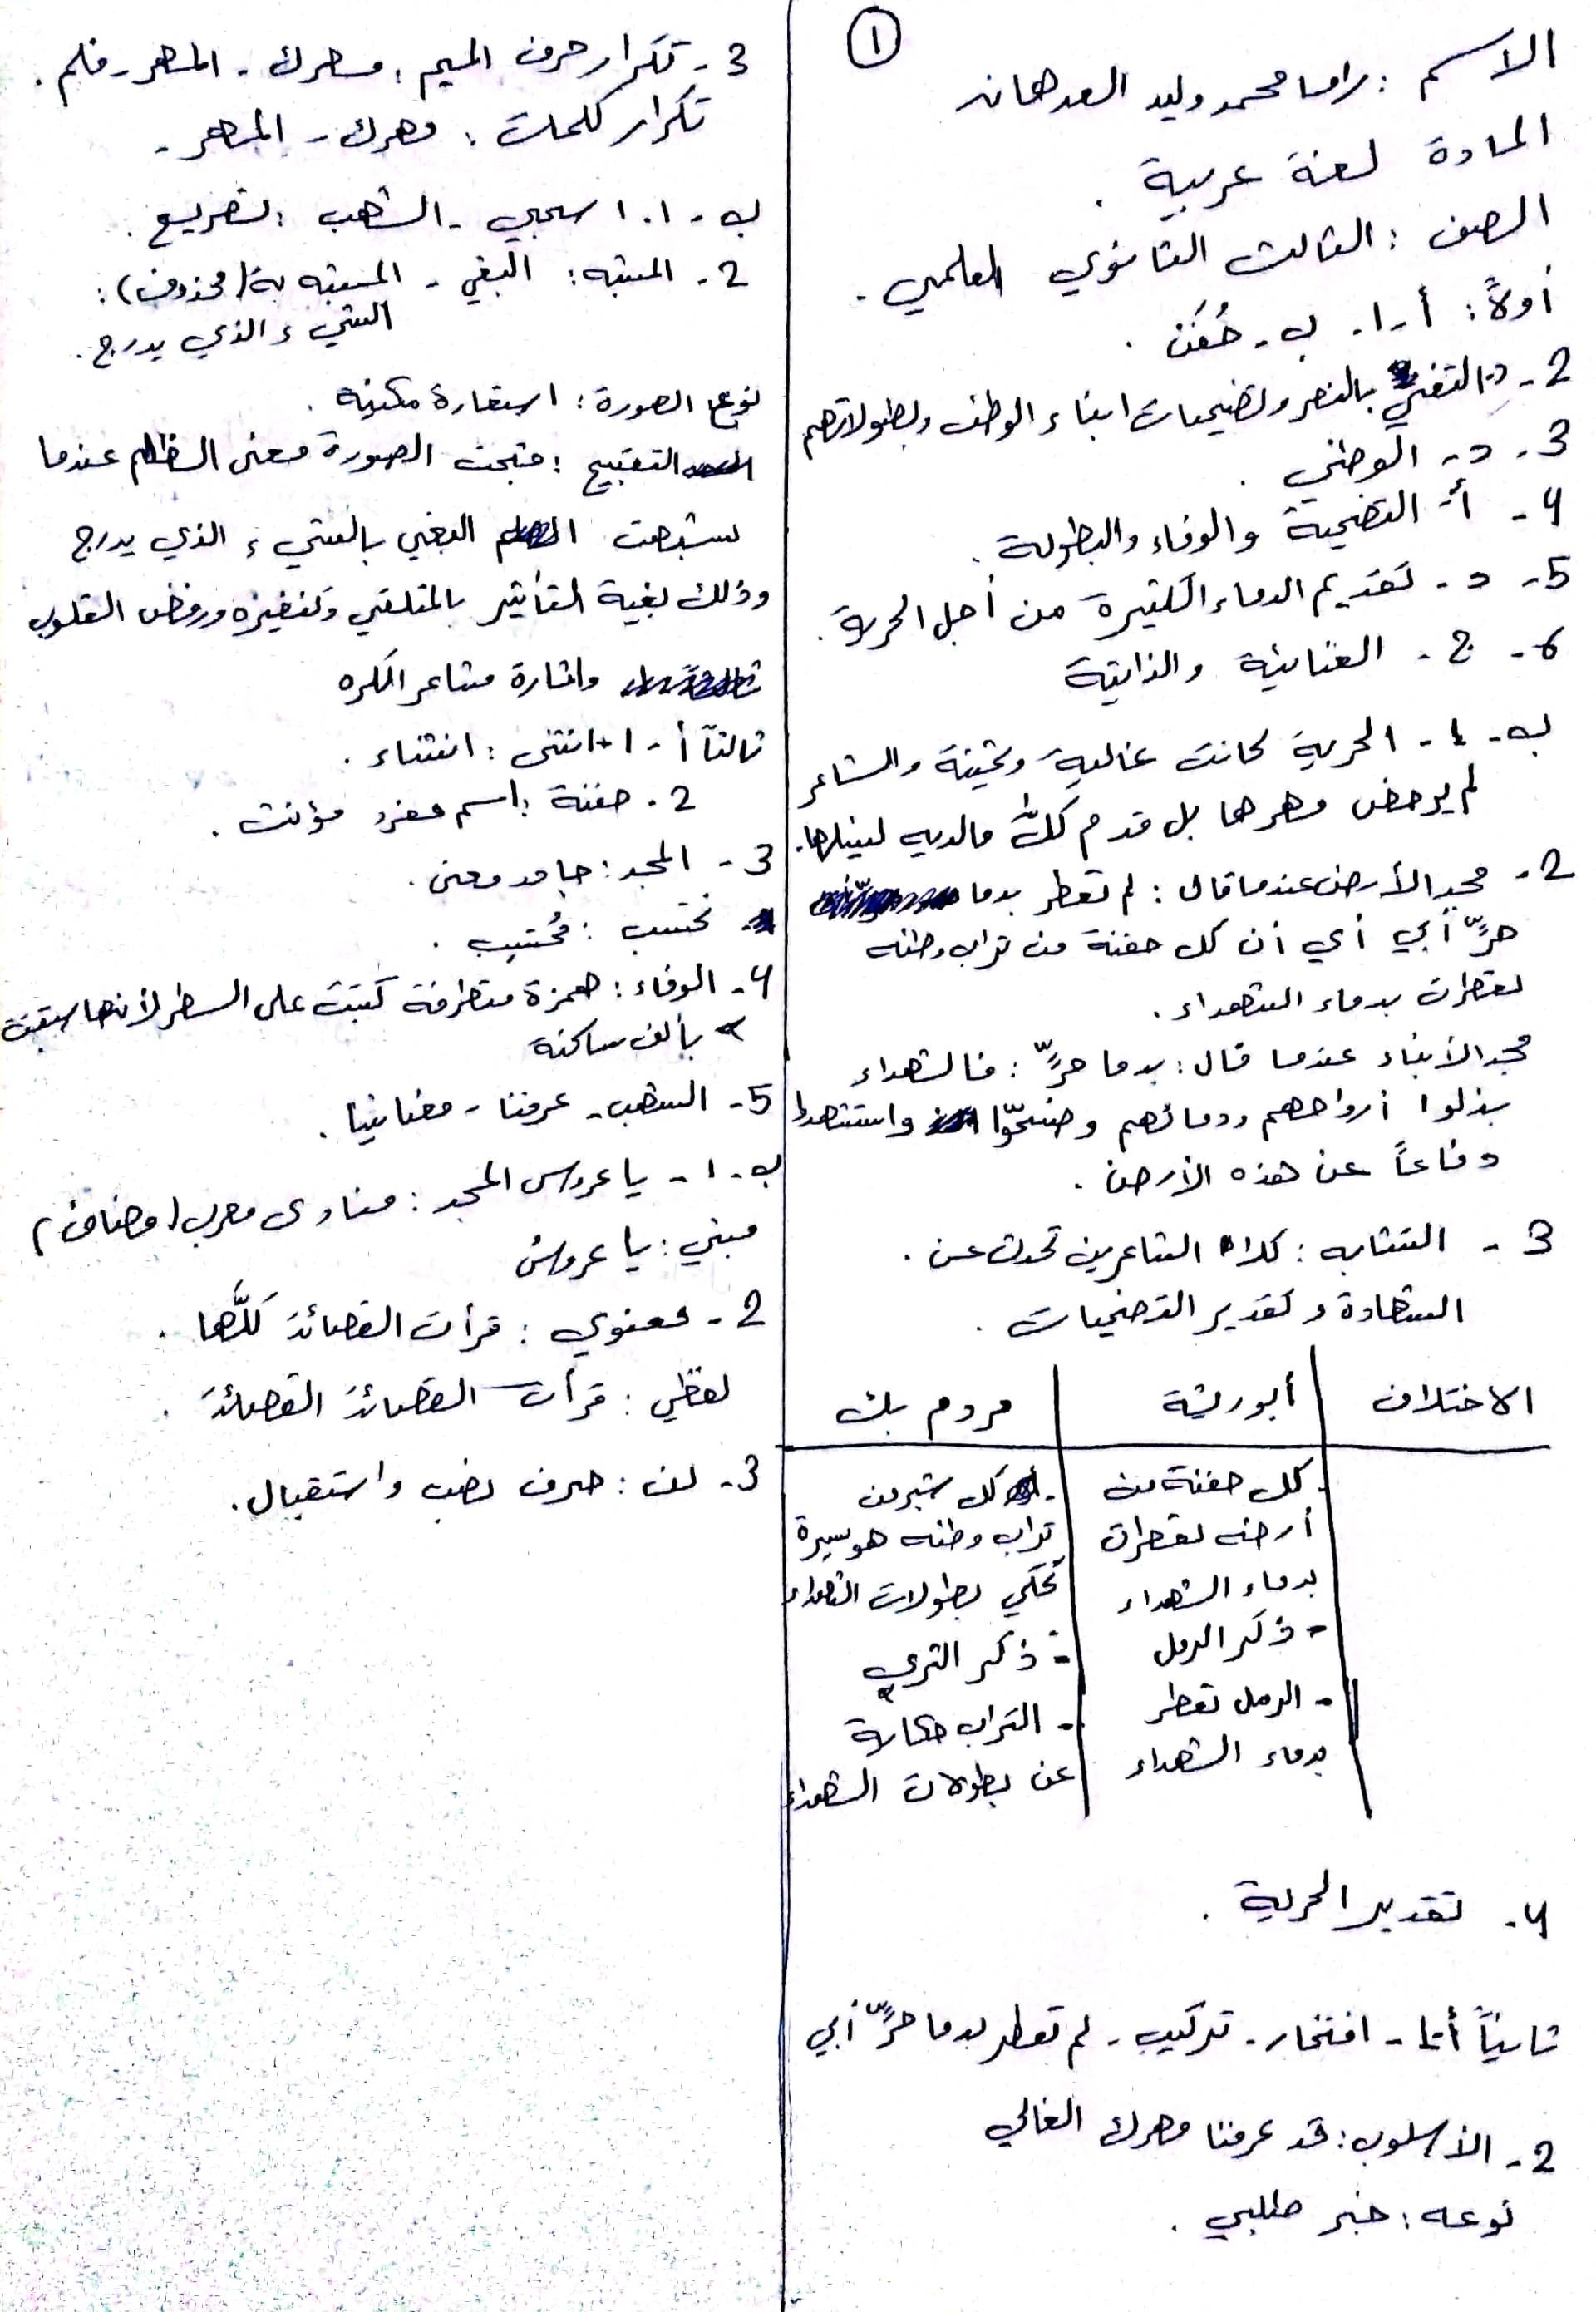 ١
الاسم : راما محمد وليد العدهان
المادة لغة عربية .
الصف : الثالث الثانوي العلمي .
أولاً : أ - ١ - ب - حُفَن .
2 - د. التغني بالنصر وتضحيات ابناء الوطن وبطولاتهم
3 - د - الوطني .
4 - أ - التضحية والوفاء والبطولة .
5 - د - تقديم الدماء الكثيرة من أجل الحرية .
6 - ج - الغنائية والذاتية
ب - ١ - الحرية كانت غالية وثمينة والشاعر
لم يرخص مهرها بل قدم كلَّ مالديه لينيلها.
2 - مجد الأرض عندما قال : لم تعطر بدما
حرٍّ أبي أي أن كل حفنة من تراب وطنه
تعطرت بدماء الشهداء .
مجد الأبناء عندما قال : بدما حرٍّ : فالشهداء
بذلوا أرواحهم ودمائهم وضحّوا واستشهدوا
دفاعاً عن هذه الأرض .
3 - التشابه : كلا الشاعرين تحدث عن .
الشهادة وتقدير التضحيات .
الاختلاف | أبوريشة | مردم بك
- كل حفنة من | - كل شبر من
أرضه تعطرت | تراب وطنه هو سيرة
بدماء الشهداء | تحكي بطولات الشهداء
- ذكر الرمل | - ذكر الترب
- الرمل تعطر | - التراب حكاية
بدماء الشهداء | عن بطولات الشهداء
4 - تقدير الحرية .
ثانياً أ - ١ - افتخار - تركيب - لم تعطر بدما حرٍّ أبي
2 - الأسلوب : قد عرفنا مهرك الغالي
نوعه : خبر طلبي .
3 - تكرار حرف الميم : مهرك - المهر - فلم .
تكرار كلمات : مهرك - المهر -
ب - ١ . اسحبي - الشهب : تصريع .
2 - المشبه : البغي - المشبه به (محذوف) :
الشيء الذي يدرج .
نوع الصورة : استعارة مكنية .
التقبيح : قبحت الصورة معنى الظلم عندما
شبهت البغي بالشيء الذي يدرج
وذلك بغية التأثير بالمتلقي وتنفيره ورفض القلوب
واثارة مشاعر الكره
ثالثاً أ - ١ - انتنى : انتناء .
2 - حفنة : اسم مفرد مؤنث .
3 - المجد : جامد معنى .
نحتسب : مُحتسِب .
4 - الوفاء : همزة متطرفة كتبت على السطر لأنها سبقت
بألف ساكنة
5 - الشهب - عرفنا - مغانينا .
ب - ١ - يا عروس المجد : منادى معرب (مضاف)
مبني : يا عروسُ
2 - معنوي : قرأت القصائدَ كلَّها .
لفظي : قرأت القصائدَ القصائدَ .
3 - لن : حرف نصب واستقبال .